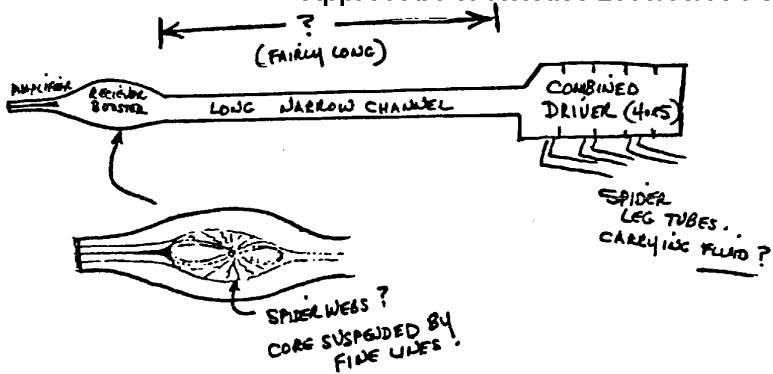 ?
(FAIRLY LONG)
AMPLIFIER
RECIEVER
BOOSTER
LONG NARROW CHANNEL
COMBINED
DRIVER (4 or 5)
SPIDER
LEG TUBES..
CARRYING FLUID?
SPIDER WEBS?
CORE SUSPENDED BY
FINE LINES.